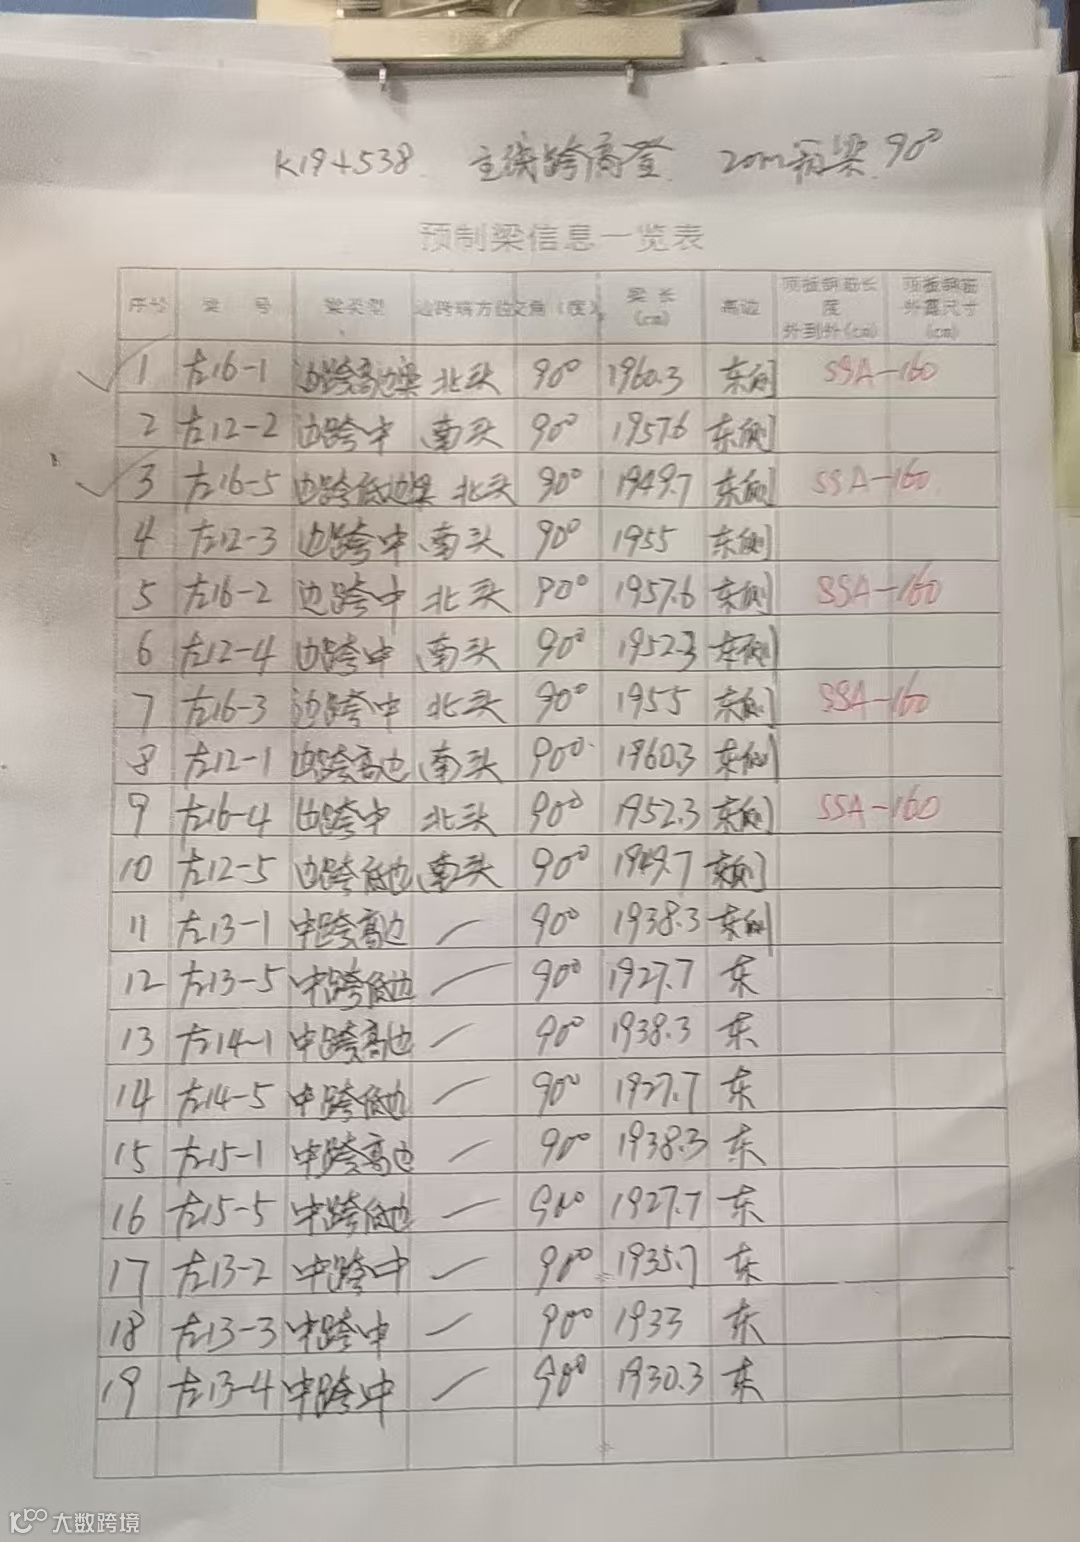 K19+538 主线跨高登 20m箱梁 90°
预制梁信息一览表
序号 梁 号 梁类型 边跨端方位 交角（度） 梁长(cm) 高边 顶板钢筋长度外到外(cm) 顶板钢筋外露尺寸(cm)
1 左16-1 边跨高边梁 北头 90° 1960.3 东侧 SSA-160
2 左12-2 边跨中 南头 90° 1957.6 东侧
3 左16-5 边跨低边梁 北头 90° 1949.7 东侧 SSA-160
4 左12-3 边跨中 南头 90° 1955 东侧
5 左16-2 边跨中 北头 90° 1957.6 东侧 SSA-160
6 左12-4 边跨中 南头 90° 1952.3 东侧
7 左16-3 边跨中 北头 90° 1955 东侧 SSA-160
8 左12-1 边跨高边 南头 90° 1960.3 东侧
9 左16-4 边跨中 北头 90° 1952.3 东侧 SSA-160
10 左12-5 边跨低边 南头 90° 1949.7 东侧
11 左13-1 中跨高边 — 90° 1938.3 东侧
12 左13-5 中跨低边 — 90° 1927.7 东
13 左14-1 中跨高边 — 90° 1938.3 东
14 左14-5 中跨低边 — 90° 1927.7 东
15 左15-1 中跨高边 — 90° 1938.3 东
16 左15-5 中跨低边 — 90° 1927.7 东
17 左13-2 中跨中 — 90° 1935.7 东
18 左13-3 中跨中 — 90° 1933 东
19 左13-4 中跨中 — 90° 1930.3 东
大数跨境